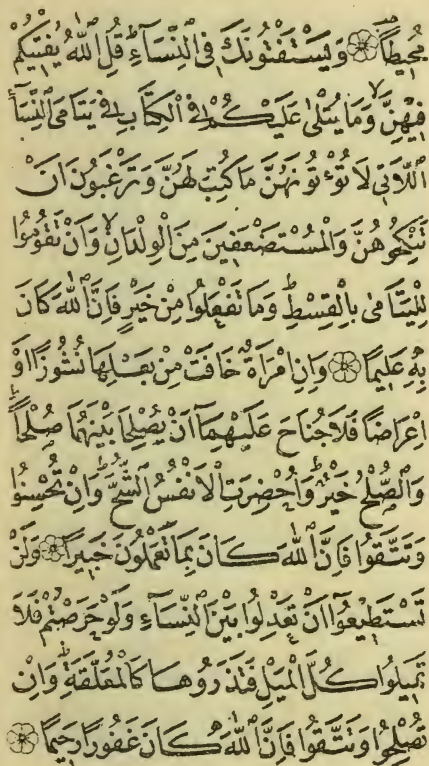 مُحِيطًا ۞ وَيَسْتَفْتُونَكَ فِي النِّسَاءِ قُلِ اللّٰهُ يُفْتِيكُمْ
فِيهِنَّ وَمَا يُتْلٰى عَلَيْكُمْ فِي الْكِتَابِ فِي يَتَامَى النِّسَاءِ
اللَّاتِي لَا تُؤْتُونَهُنَّ مَا كُتِبَ لَهُنَّ وَتَرْغَبُونَ اَنْ
تَنْكِحُوهُنَّ وَالْمُسْتَضْعَفِينَ مِنَ الْوِلْدَانِ وَاَنْ تَقُومُوا
لِلْيَتَامٰى بِالْقِسْطِ وَمَا تَفْعَلُوا مِنْ خَيْرٍ فَاِنَّ اللّٰهَ كَانَ
بِهِ عَلِيمًا ۞ وَاِنِ امْرَاَةٌ خَافَتْ مِنْ بَعْلِهَا نُشُوزًا اَوْ
اِعْرَاضًا فَلَا جُنَاحَ عَلَيْهِمَا اَنْ يُصْلِحَا بَيْنَهُمَا صُلْحًا
وَالصُّلْحُ خَيْرٌ وَاُحْضِرَتِ الْاَنْفُسُ الشُّحَّ وَاِنْ تُحْسِنُوا
وَتَتَّقُوا فَاِنَّ اللّٰهَ كَانَ بِمَا تَعْمَلُونَ خَبِيرًا ۞ وَلَنْ
تَسْتَطِيعُوا اَنْ تَعْدِلُوا بَيْنَ النِّسَاءِ وَلَوْ حَرَصْتُمْ فَلَا
تَمِيلُوا كُلَّ الْمَيْلِ فَتَذَرُوهَا كَالْمُعَلَّقَةِ وَاِنْ
تُصْلِحُوا وَتَتَّقُوا فَاِنَّ اللّٰهَ كَانَ غَفُورًا رَحِيمًا ۞